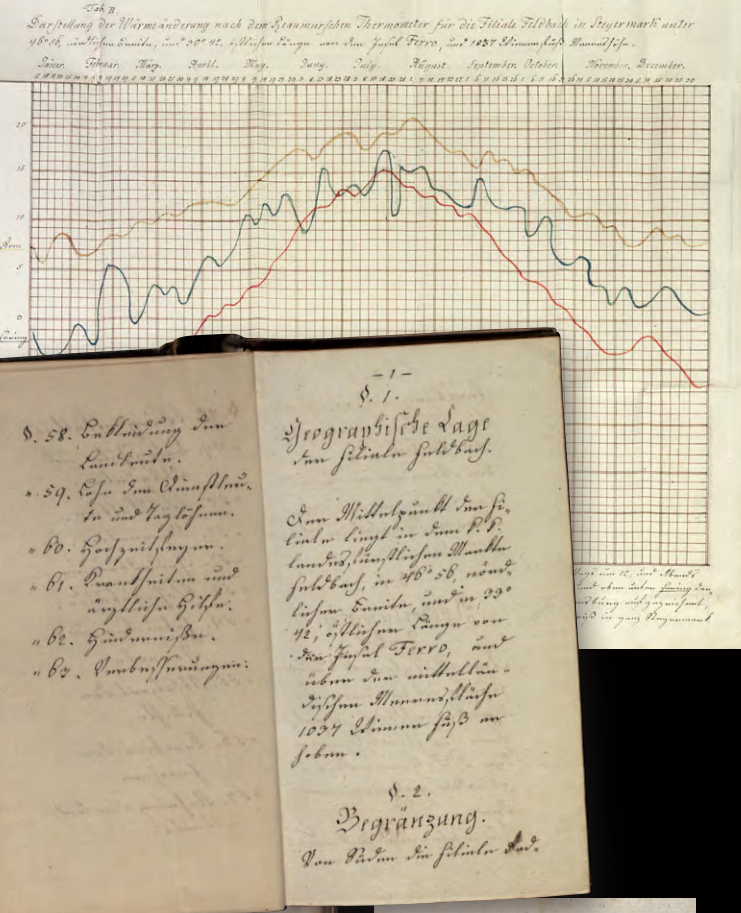 Tab. II.
Darstellung der Wärmeänderung nach dem Reaumurschen Thermometer für die Filiale Feldbach in Steyermark unter
46° 56, nördlicher Breite, und 33° 42, östlicher Länge von der Insel Ferro, und 1037 Wiener Fuß Meereshöhe.
Jäner. Februar. März. April. May. Juny. July. August. September. October. November. December.
20
15
10
5
0
– 1 –
§. 1.
Geographische Lage
der Filiale Feldbach.
Der Mittelpunkt der Fi-
liale liegt in dem k. k.
landesfürstlichen Markte
Feldbach, in 46° 56, nörd-
licher Breite, und in 33°
42, östlicher Länge von
der Insel Ferro, und
über der mittellän-
dischen Meeresfläche
1037 Wiener Fuß er
hoben.
§. 2.
Begränzung.
Von Süden die Filiale Rad-
§. 58. Bekleidung der
Landleute.
" 59. Lohn der Dienstleu-
te und Taglöhner.
" 60. Hochzeitsfeyer.
" 61. Krankheiten und
ärztliche Hilfe.
" 62. Hinderniße.
" 63. Verbesserungen.
um 12, und Abends